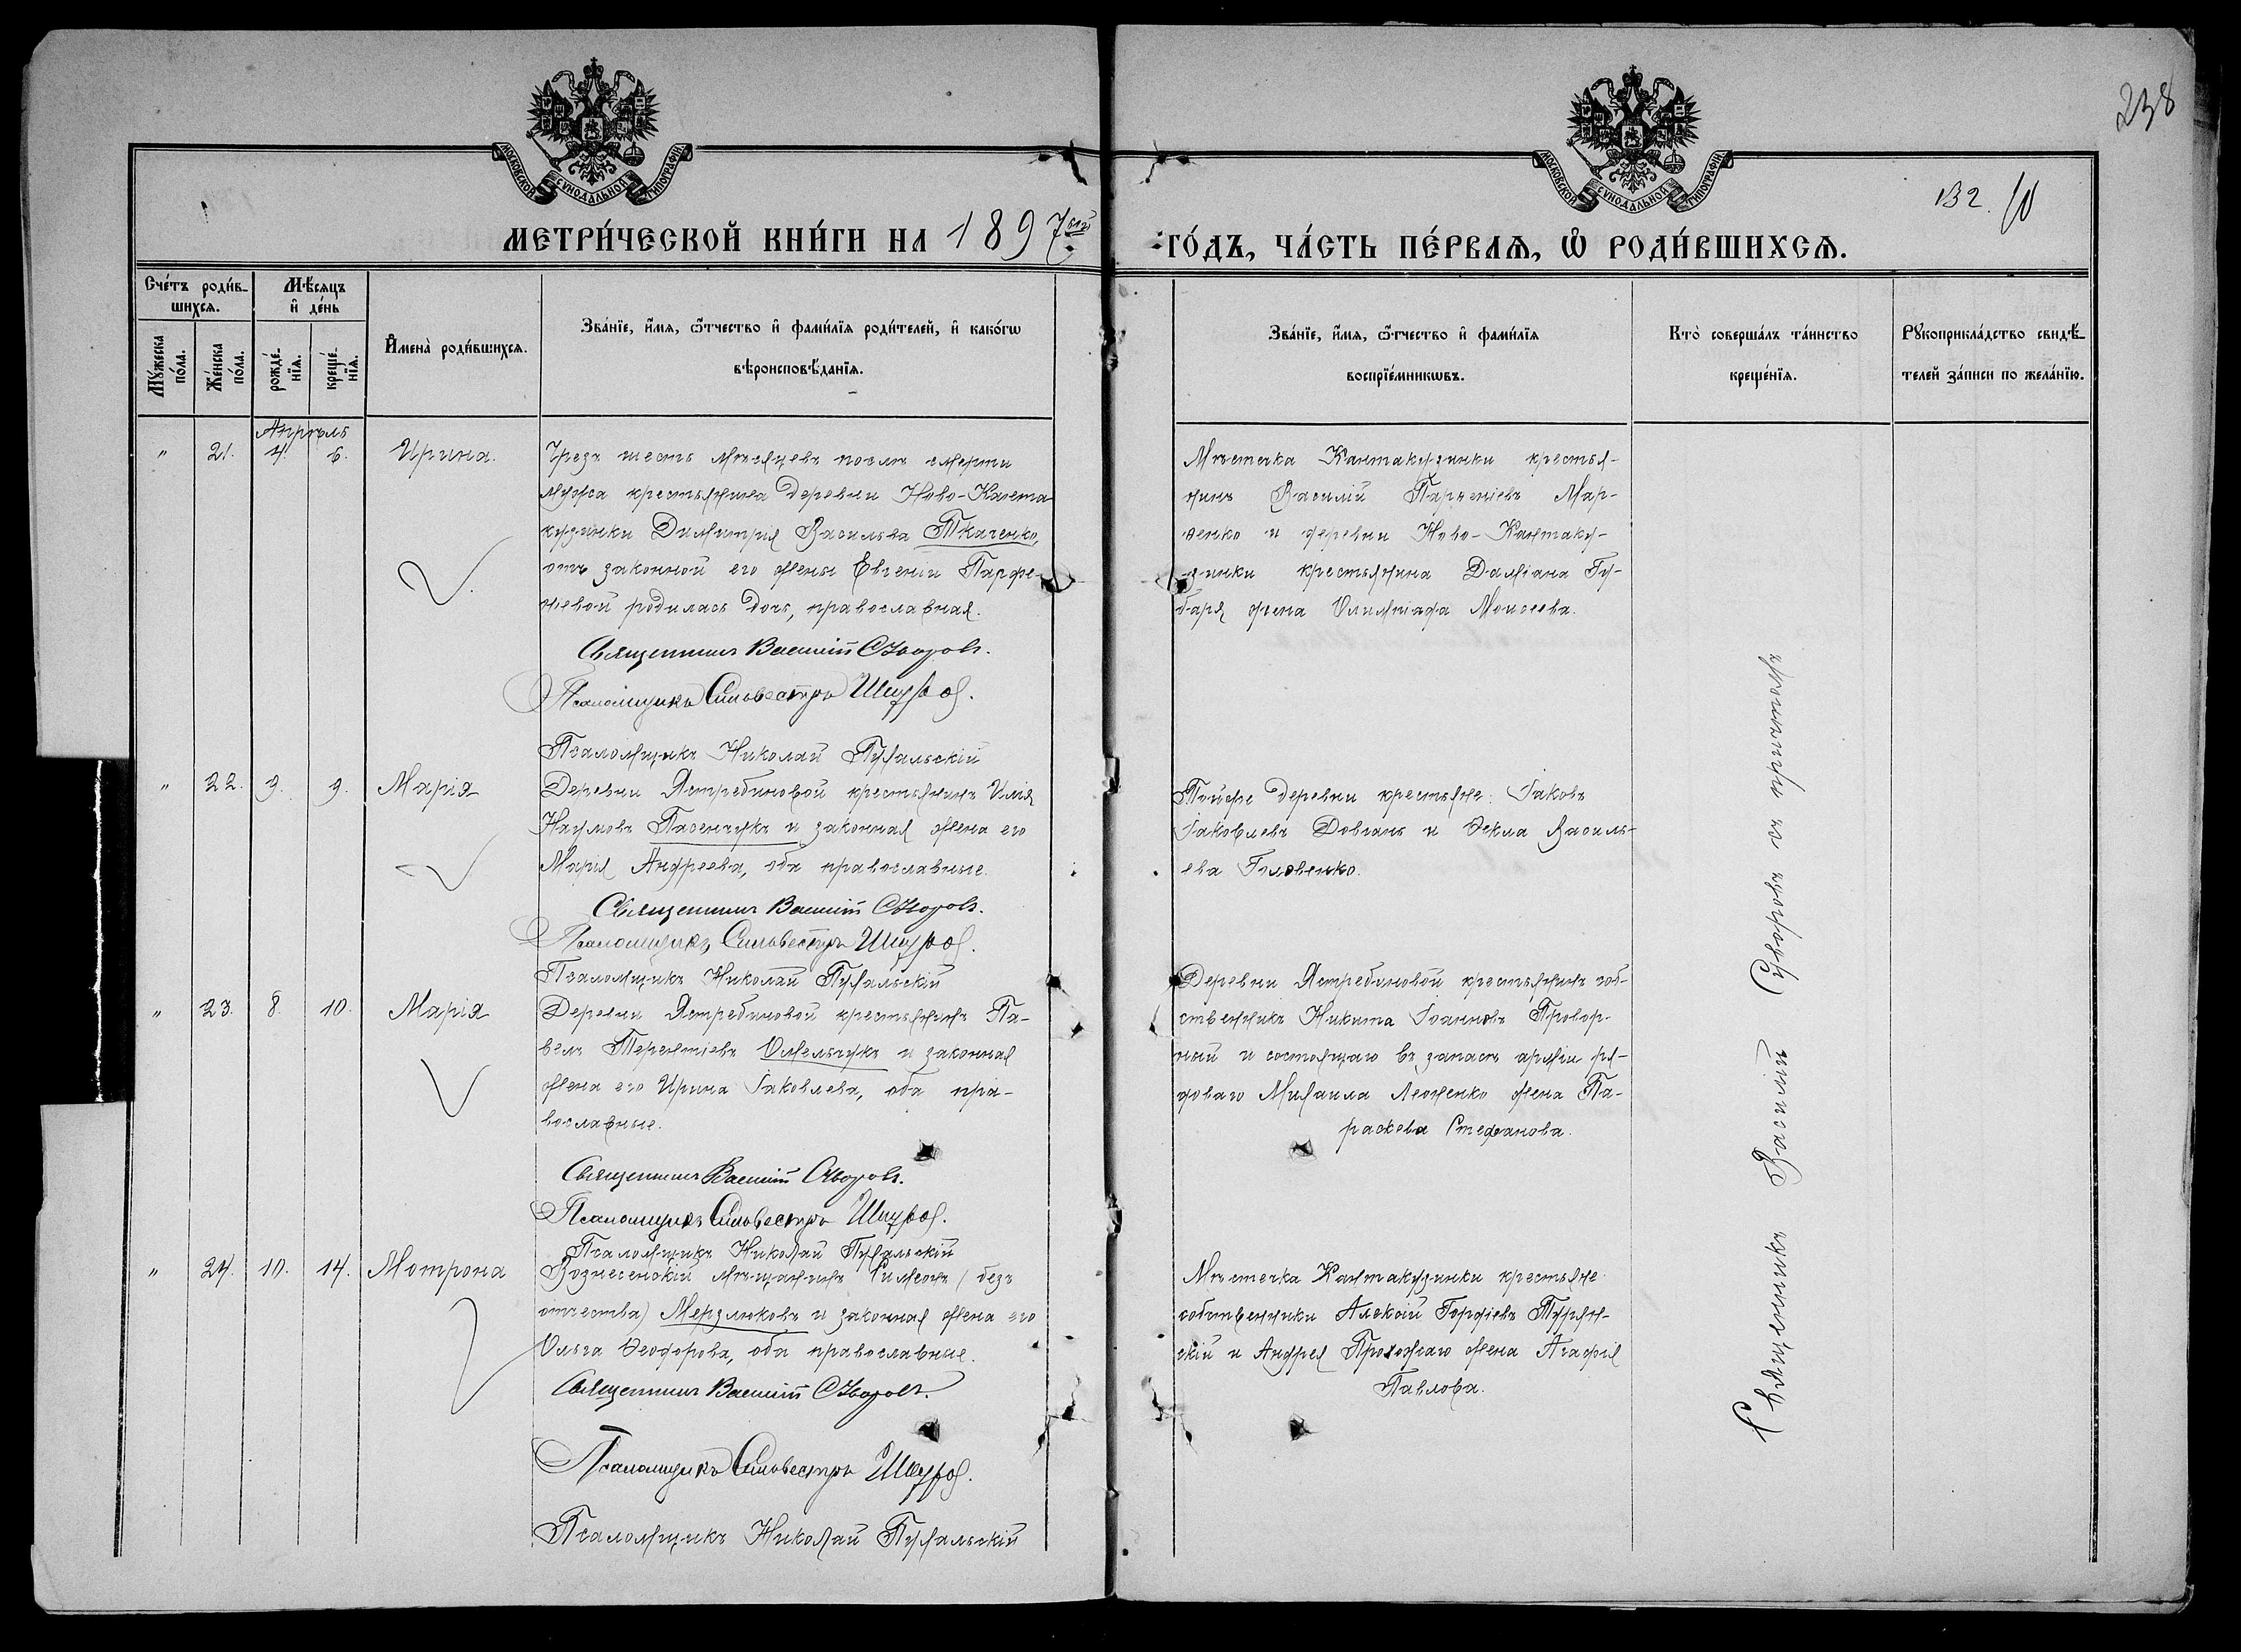 238
132.
МОСКОВСКОЙ СѴНОДАЛЬНОЙ ТИПОГРАФІИ
МОСКОВСКОЙ СѴНОДАЛЬНОЙ ТИПОГРАФІИ
МЕТРИ́ЧЕСКОЙ КНИ́ГИ НА 1897
ГО́ДЪ, ЧА́СТЬ ПЕ́РВАЯ, Ѡ РОДИ́ВШИХСЯ.
Сче́тъ роди́в-
шихся.
Мѣ́сяцъ
и҆ де́нь
Мꙋ́жеска по́ла.
Же́нска по́ла.
рожде́-
нїѧ.
креще́-
нїѧ.
И҆мена̀ роди́вшихся.
Зва́нїе, и҆́мя, ѻ҆́тчество и҆ фами́лїя роди́телей, и҆ како́гѡ
вѣроисповѣ́данїя.
Зва́нїе, и҆́мя, ѻ҆́тчество и҆ фами́лїя
воспрїе́мникѡвъ.
Кто̀ соверша́лъ та́инство
креще́нїя.
Рꙋкоприкла́дство свидѣ́-
телей за́писи по жела́нїю.
Апрѣль
" 21. 4. 6. Ирина.
Чрезъ шесть мѣсяцевъ послѣ смерти
мужа крестьянина деревни Ново-Канта-
кузинки Димитрія Васильева Ткаченко,
отъ законной его жены Евгеніи Парфе-
ніевой родилась дочь, православная.
Священникъ Василій Суворовъ.
Псаломщикъ Сильвестръ
Псаломщикъ Николай
Мѣстечка Кантакузинки крестья-
нинъ Василій Парѳеніевъ Мар-
ченко и деревни Ново-Кантаку-
зинки крестьянина Даміана Гу-
баря жена Олимпіада Моисеева.
" 22. 9. 9. Марія
Деревни Ястребиновой крестьянинъ Илія
Наумовъ Пасенчукъ и законная жена его
Марія Андреева, оба православные.
Священникъ Василій Суворовъ.
Псаломщикъ Сильвестръ
Псаломщикъ Николай
Тойже деревни крестьяне: Іаковъ
Іаковлевъ Довгань и Ѳекла Василь-
ева Головенко.
" 23. 8. 10. Марія
Деревни Ястребиновой крестьянинъ Па-
велъ Терентіевъ Омельчукъ и законная
жена его Ирина Іаковлева, оба пра-
вославные.
Священникъ Василій Суворовъ.
Псаломщикъ Сильвестръ
Псаломщикъ Николай
Деревни Ястребиновой крестьянинъ соб-
ственникъ Никита Іоанновъ Провор-
ный и состоящаго въ запасѣ арміи ря-
доваго Михаила Леоненко жена Па-
раскева Стефанова.
" 24. 10. 14. Мотрона
Вознесенскій мѣщанинъ Симеонъ (безъ
отчества) Мерзлюковъ и законная жена его
Ольга Ѳеодорова, оба православные.
Священникъ Василій Суворовъ.
Псаломщикъ Сильвестръ
Псаломщикъ Николай
Мѣстечка Кантакузинки крестьяне
собственники Алексій Гордіевъ Турян-
скій и Андрея Прохожаго жена Агафія
Павлова.
Священникъ Василій Суворовъ съ причтомъ